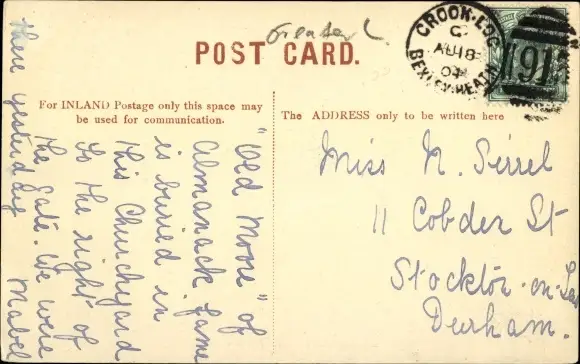 Greater L
POST CARD.
CROOK-LOG
C
AU 18
04
BEXLEY-HEATH
91
For INLAND Postage only this space may
be used for communication.
The ADDRESS only to be written here
"Old Moore" of
Almanack fame
is buried in
this Churchyard
to the right of
the gate. We were
there yesterday
Mabel
Miss N. Serrel
11 Cobden St
Stockton-on-Tees
Durham.